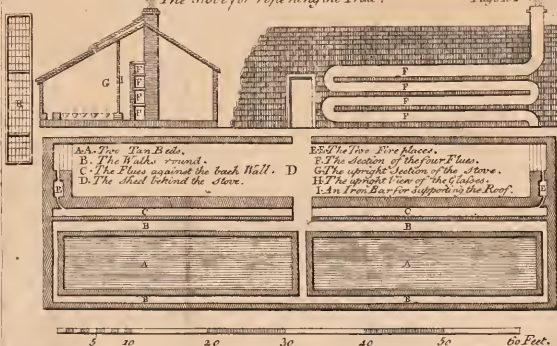 The Stove for ripening the Fruit.
G
I
F
F
F
F
F
F
F
F
H
A-A. Two Tan Beds.
B. The Walk round.
C. The Flues against the back Wall.
D. The Shed behind the Stove.
D
E-E. The Two Fire places.
F. The Section of the four Flues.
G. The upright Section of the Stove.
H. The upright View of the Glasses.
I. An Iron Bar for supporting the Roof.
E
E
C
C
B
B
A
A
B
B
5 10 20 30 40 50 60 Feet.